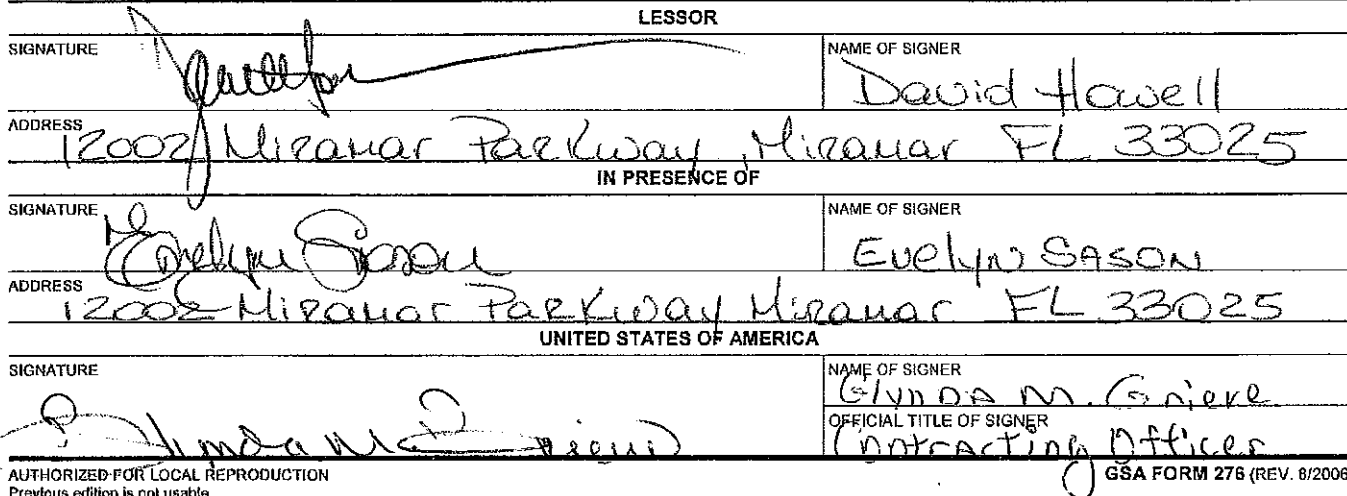 LESSOR
SIGNATURE NAME OF SIGNER
David Howell
ADDRESS 12002 Miramar Parkway, Miramar FL 33025
IN PRESENCE OF
SIGNATURE Evelyn Sason NAME OF SIGNER
Evelyn SASON
ADDRESS 12002 Miramar Parkway Miramar FL 33025
UNITED STATES OF AMERICA
SIGNATURE NAME OF SIGNER
Glynda M. Grieve
OFFICIAL TITLE OF SIGNER
Contracting Officer
AUTHORIZED FOR LOCAL REPRODUCTION
Previous edition is not usable
GSA FORM 276 (REV. 8/2006